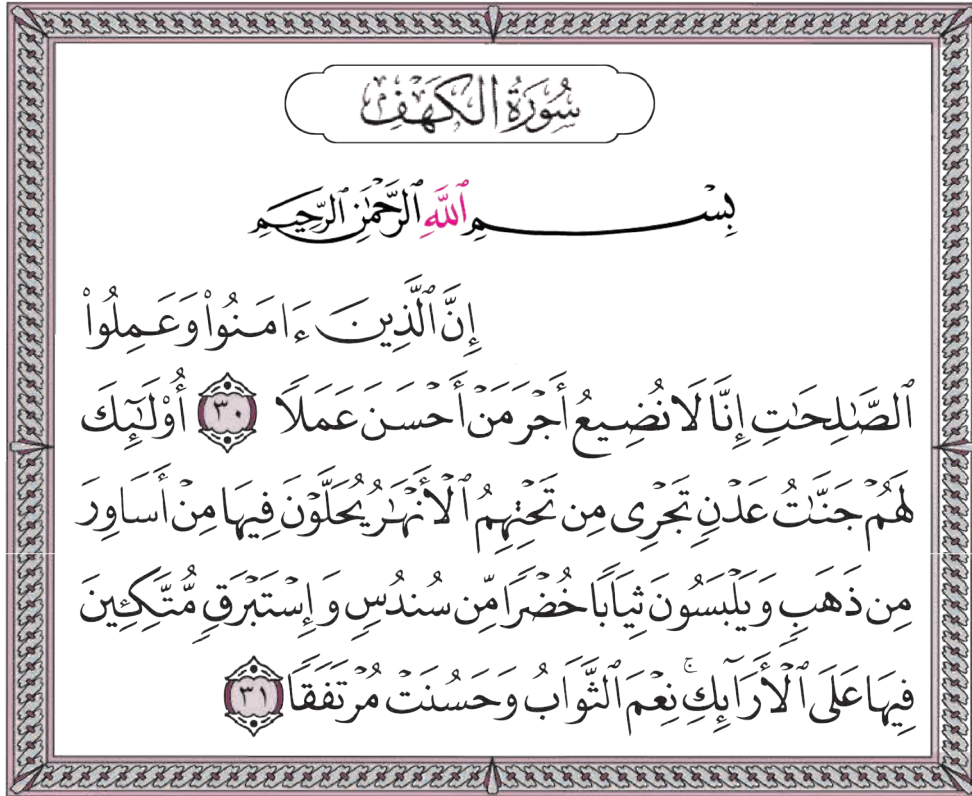 سُورَةُ الكَهْفِ
بِسْمِ ٱللَّهِ ٱلرَّحْمَٰنِ ٱلرَّحِيمِ
إِنَّ ٱلَّذِينَ ءَامَنُوا۟ وَعَمِلُوا۟
ٱلصَّٰلِحَٰتِ إِنَّا لَا نُضِيعُ أَجْرَ مَنْ أَحْسَنَ عَمَلًا ٣٠ أُو۟لَٰٓئِكَ
لَهُمْ جَنَّٰتُ عَدْنٍ تَجْرِى مِن تَحْتِهِمُ ٱلْأَنْهَٰرُ يُحَلَّوْنَ فِيهَا مِنْ أَسَاوِرَ
مِن ذَهَبٍ وَيَلْبَسُونَ ثِيَابًا خُضْرًا مِّن سُندُسٍ وَإِسْتَبْرَقٍ مُّتَّكِـِٔينَ
فِيهَا عَلَى ٱلْأَرَآئِكِ ۚ نِعْمَ ٱلثَّوَابُ وَحَسُنَتْ مُرْتَفَقًا ٣١